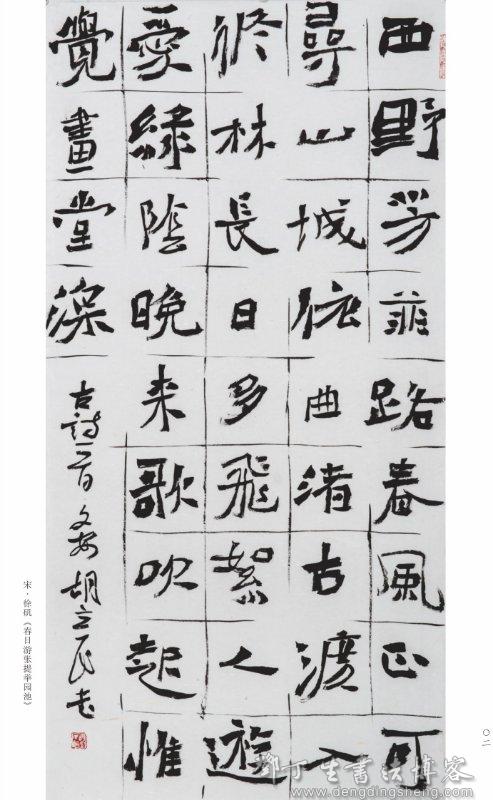 西野芳菲路春風正可
尋山城依曲渚古渡入
修林長日多飛絮人遊
愛綠陰晚來歌吹起惟
覺畫堂深
古詩一首文安胡立民书
宋·徐玑《春日游张提举园池》
邓丁生書法博客
www.dengdingsheng.com